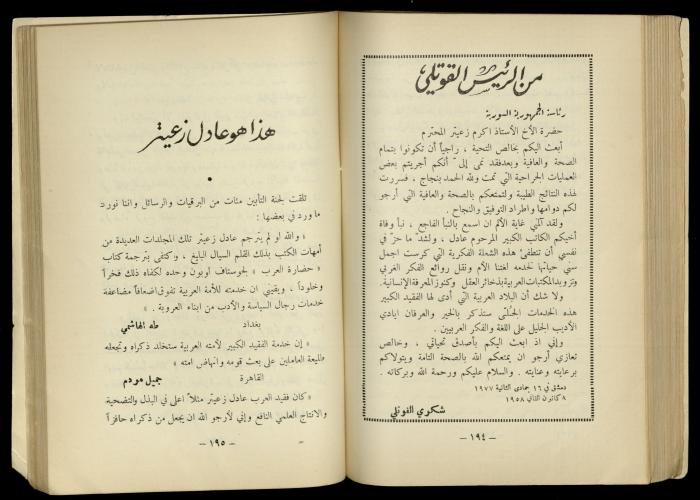 من الرئيس القوتلي
رئاسة الجمهورية السورية
حضرة الأخ الأستاذ اكرم زعيتر المحترم
أبعث اليكم بخالص التحية ، راجياً أن تكونوا بتمام
الصحة والعافية وبعد فقد نمى إليّ أنكم أجريتم بعض
العمليات الجراحية التي تمت ولله الحمد بنجاح ، فسررت
لهذه النتائج الطيبة ولتمتعكم بالصحة والعافية التي أرجو
لكم دوامها واطراد التوفيق والنجاح .
ولقد آلمني غاية الألم ان اسمع بالنبأ الفاجع ، نبأ وفاة
أخيكم الكاتب الكبير المرحوم عادل ، ولشد ما حزّ في
نفسي أن تنطفئ هذه الشعلة الفكرية التي كرست اجمل
سني حياتها لخدمة لغتنا الأم ونقل روائع الفكر الغربي
وتزويد المكتبات العربية بذخائر العقل وكنوز المعرفة الإنسانية.
ولا شك أن البلاد العربية التي أدى لها الفقيد الكبير
هذه الخدمات الجلّى ستذكر بالخير والعرفان ايادي
الأديب الجليل على اللغة والفكر العربيين .
وإني اذ ابعث اليكم بأصدق تحياتي ، وخالص
تعازي أرجو ان يمتعكم الله بالصحة التامة ويتولاكم
برعايته وعنايته . والسلام عليكم ورحمة الله وبركاته .
دمشق في ١٦ جمادى الثانية ١٩٧٧
٨ كانون الثاني ١٩٥٨
شكري القوتلي
– ١٩٤ –
هذا هو عادل زعيتر
•
تلقت لجنة التأبين مئات من البرقيات والرسائل واننا نورد
ما ورد في بعضها :
« والله لو لم يترجم عادل زعيتر تلك المجلدات العديدة من
أمهات الكتب بذلك القلم السيال البليغ ، واكتفى بترجمة كتاب
« حضارة العرب » لجوستاف لوبون وحده لكفاه ذلك فخراً
وخلوداً ، ويقيني ان خدمته للأمة العربية تفوق اضعافاً مضاعفة
خدمات رجال السياسة والأدب من ابناء العروبة . »
بغداد طه الهاشمي
« إن خدمة الفقيد الكبير لأمته العربية ستخلد ذكراه وتجعله
طليعة العاملين على بعث قومه وانهاض امته »
القاهرة جميل مردم
« كان فقيد العرب عادل زعيتر مثلاً اعلى في البذل والتضحية
والانتاج العلمي النافع وإني لأرجو الله ان يجعل من ذكراه حافزاً
– ١٩٥ –